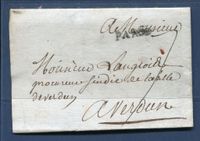 A Monsieur
PARIS
Monsieur Langlois
procureur sindic de la ville
de verdun
A Verdun